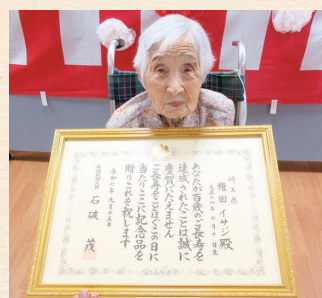 埼玉県
権田 イサジ 殿
あなたが百歳のご長寿を
達成されたことは誠に
慶賀にたえません
ご長寿をことほぐこの日に
当たりここに記念品を
贈りこれを祝します
令和七年九月十五日
内閣総理大臣 石破 茂